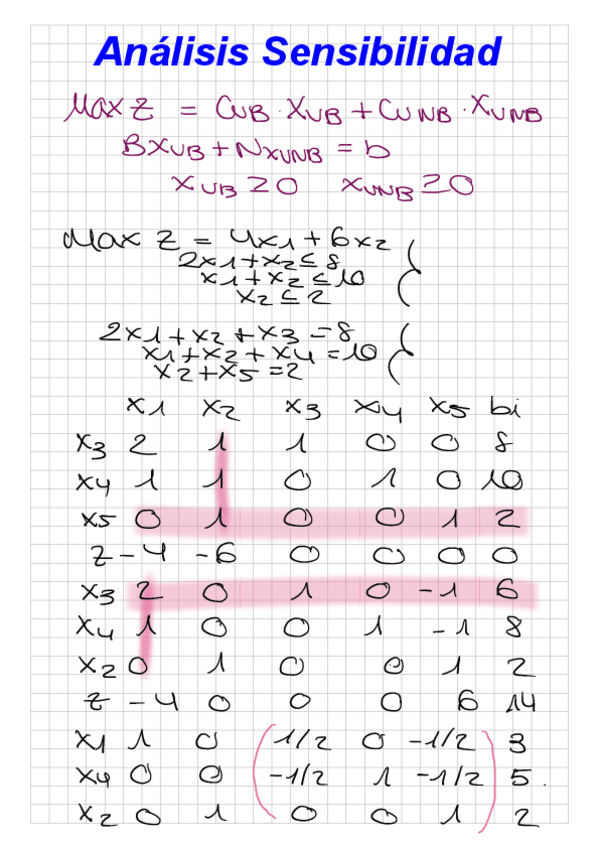 Análisis Sensibilidad
Max Z = CUB · XUB + CUNB · XUNB
BXUB + NXUNB = b
XUB ≥ 0 XUNB ≥ 0
Max Z = 4x1 + 6x2
2x1 + x2 ≤ 8
x1 + x2 ≤ 10
x2 ≤ 2
2x1 + x2 + x3 = 8
x1 + x2 + x4 = 10
x2 + x5 = 2
x1 x2 x3 x4 x5 bi
x3 2 1 1 0 0 8
x4 1 1 0 1 0 10
x5 0 1 0 0 1 2
Z -4 -6 0 0 0 0
x3 2 0 1 0 -1 6
x4 1 0 0 1 -1 8
x2 0 1 0 0 1 2
Z -4 0 0 0 6 14
x1 1 0 1/2 0 -1/2 3
x4 0 0 -1/2 1 -1/2 5.
x2 0 1 0 0 1 2